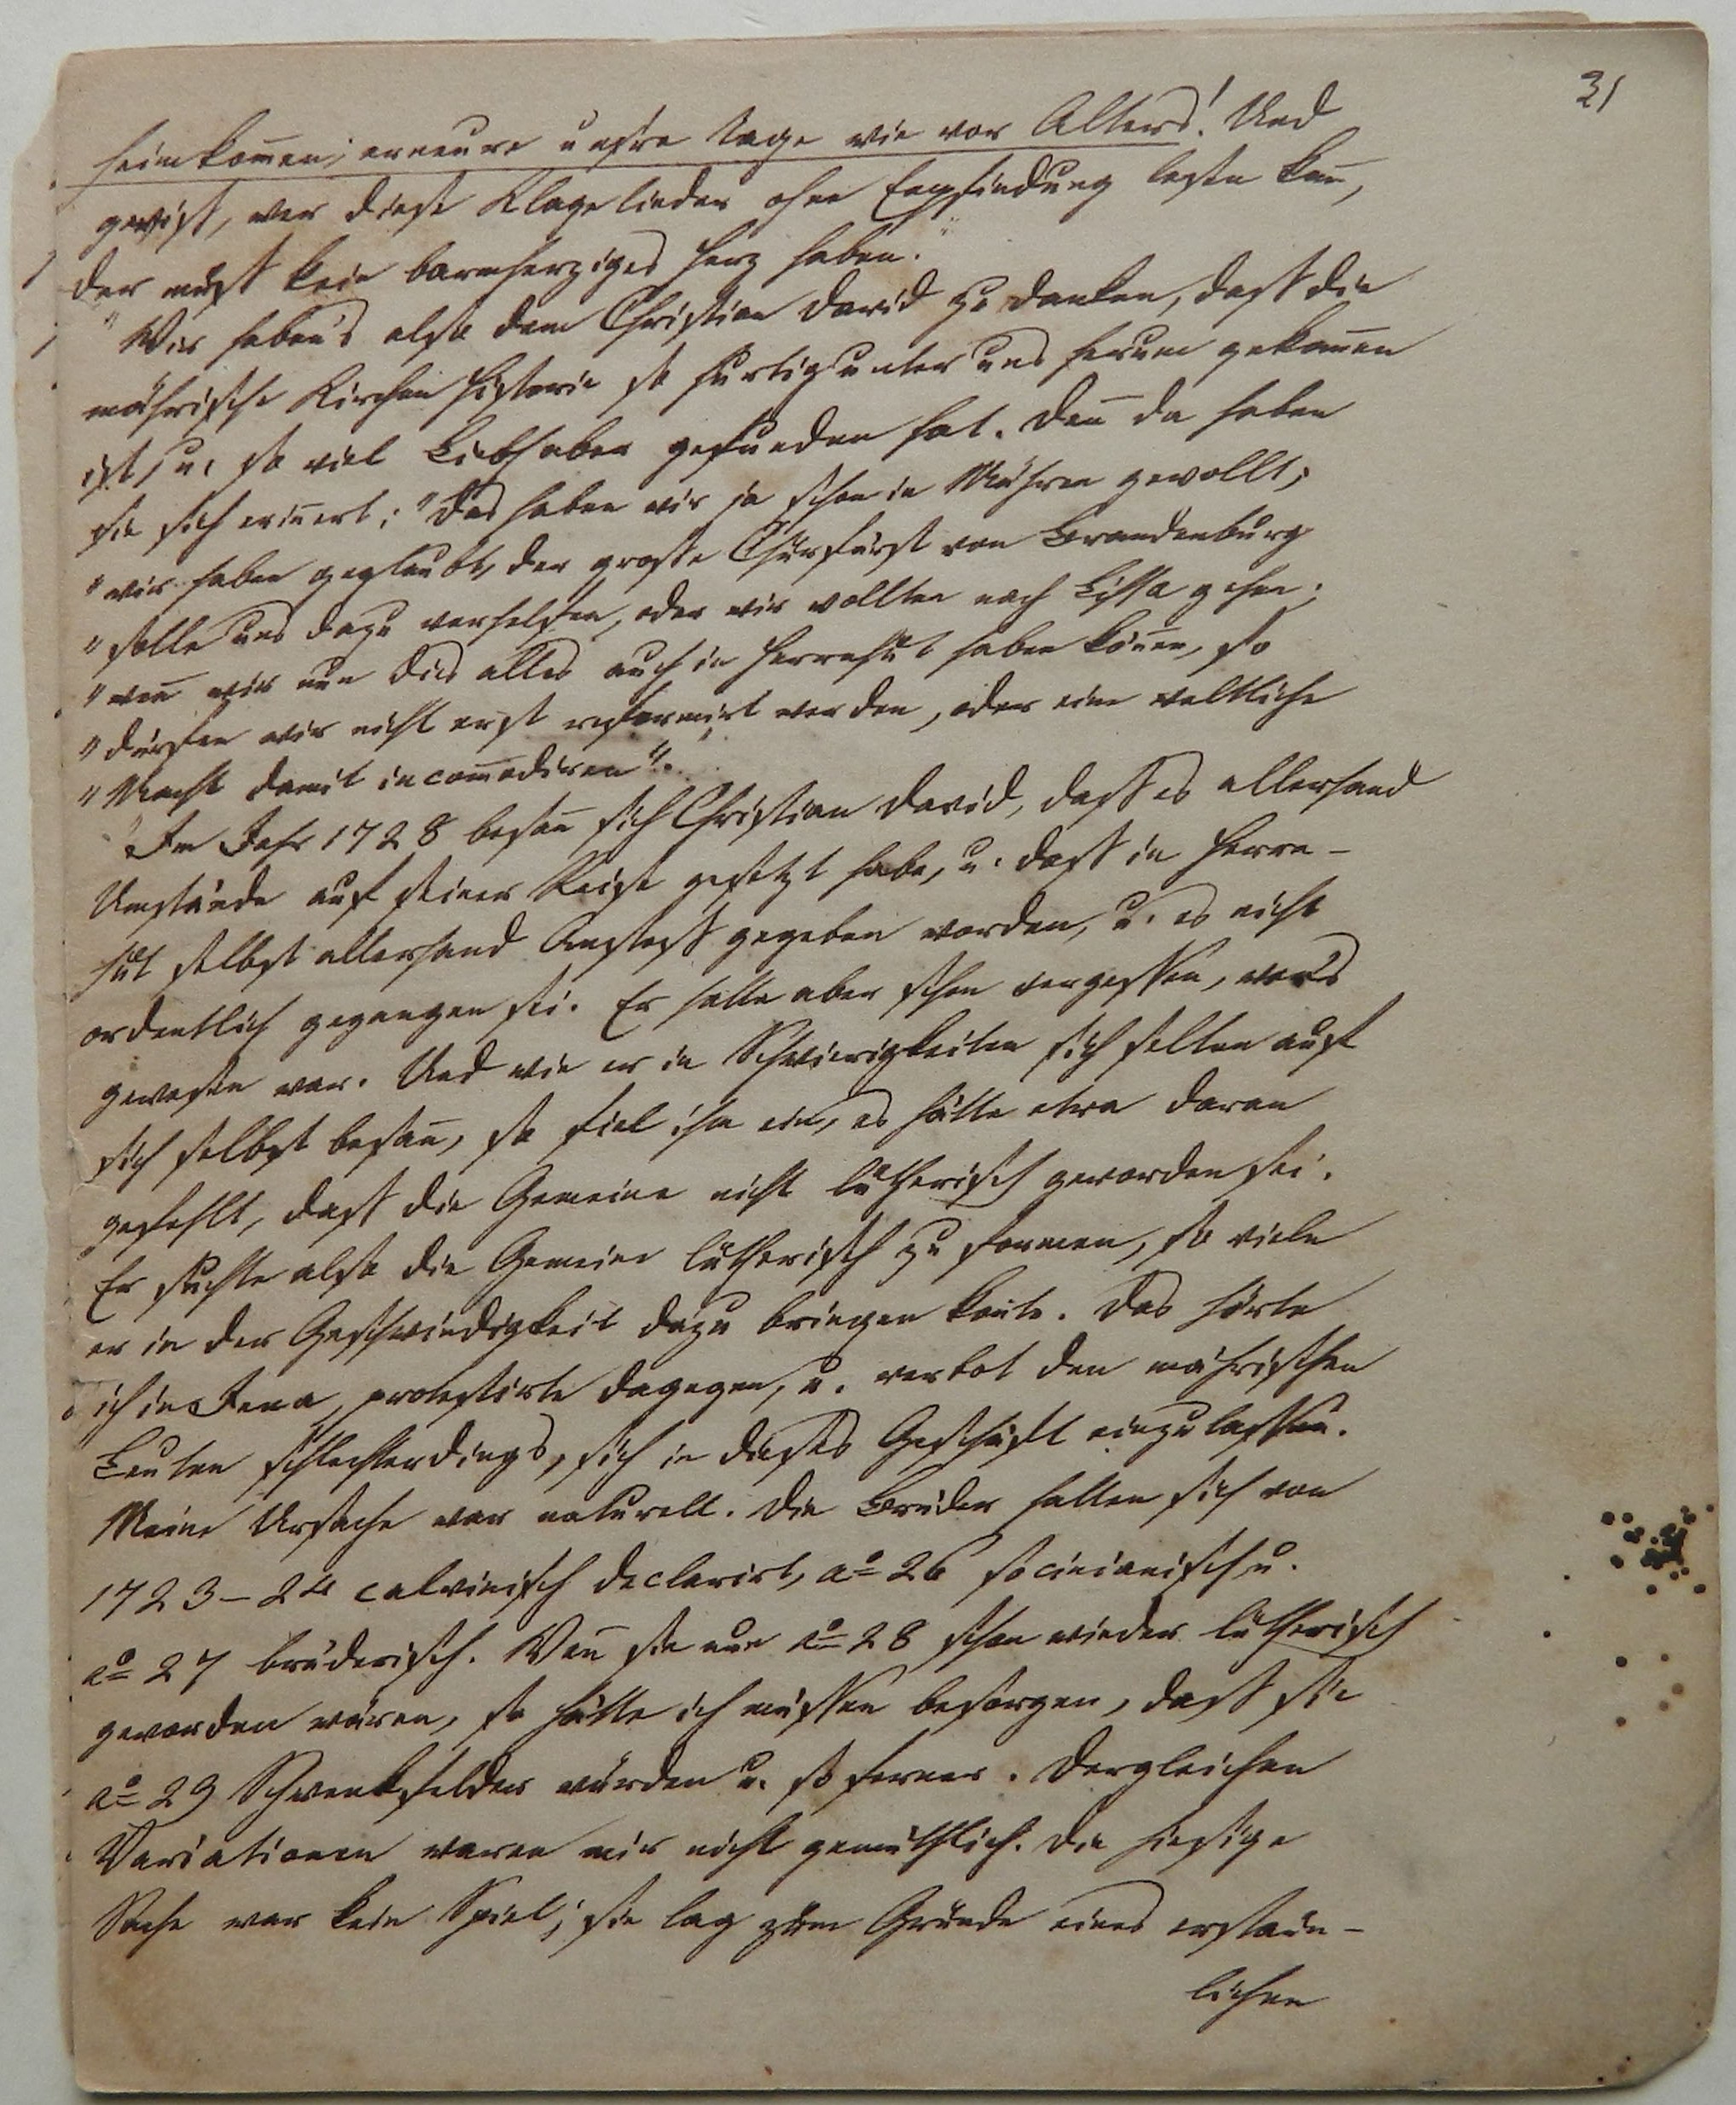 31
heimkom̅en; erneure unsre Tage wie vor Alters! Und
gewiß, wer diese Klagelieder ohne Empfindung lesen kan̅,
der muß kein barmherziges Herz haben."
"Wir haben's also dem Christian David zu danken, daß die
mährische Kirchen Historie so hurtig unter uns herum gekom̅en
ist, u. so viel Liebhaber gefunden hat. Den̅ da haben
sie sich erin̅ert: "Das haben wir ja schon in Mähren gewollt;
"wir haben geglaubt, der große Churfürst von Brandenburg
"solle uns dazu verhelfen, oder wir wollten nach Lissa gehen;
"wen̅ wir nun dies alles auch in Herrnhut haben kön̅en, so
"dürfen wir nicht erst reformirt werden, oder eine weltliche
"Macht damit incom̅odiren".
"Im Jahr 1728 besan̅ sich Christian David, daß es allerhand
Umstände auf seiner Reise gesetzt habe, u. daß in Herrn-
hut selbst allerhand Anstoß gegeben worden, u. es nicht
ordentlich gegangen sei. Er hatte aber schon vergessen, wer's
gewesen war. Und wie er in Schwierigkeiten sich selten auf
sich selbst besan̅, so fiel ihm ein, es hätte etwa daran
gefehlt, daß die Gemeine nicht lutherisch geworden sei.
Er suchte also die Gemeine lutherisch zu formen, so viele
er in der Geschwindigkeit dazu bringen kon̅te. Das hörte
ich in Jena, protestirte dagegen, u. verbot den mährischen
Leuten schlechterdings, sich in dieses Geschäft einzulassen.
Meine Ursache war naturell. Die Brüder hatten sich von
1723–24 calvinisch declarirt, aº 26 socinianisch u.
aº 27 brüderisch. Wen̅ sie nun aº 28 schon wieder lutherisch
geworden wären, so hätte ich müssen besorgen, daß sie
aº 29 Schwenkfelder würden u. so ferner. Dergleichen
Variationen waren mir nicht gemüthlich. Die hiesige
Sache war kein Spiel; sie lag zum Grunde eines erstaun-
lichen